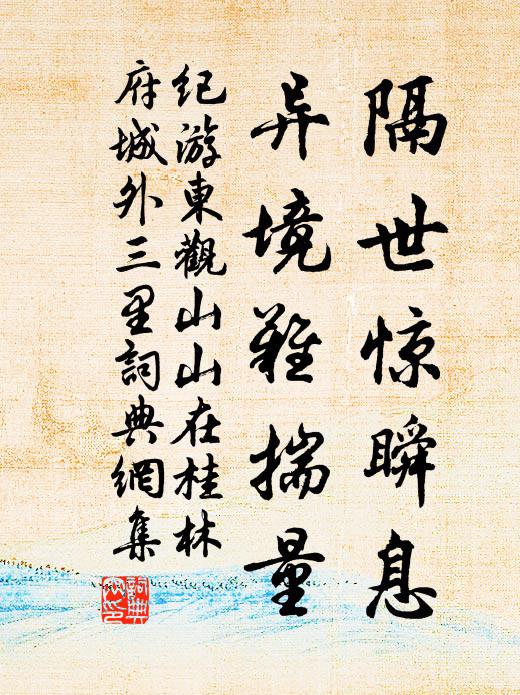 隔世惊瞬息
异境难揣量
纪游東觀山山在桂林
府城外三里詞典網集